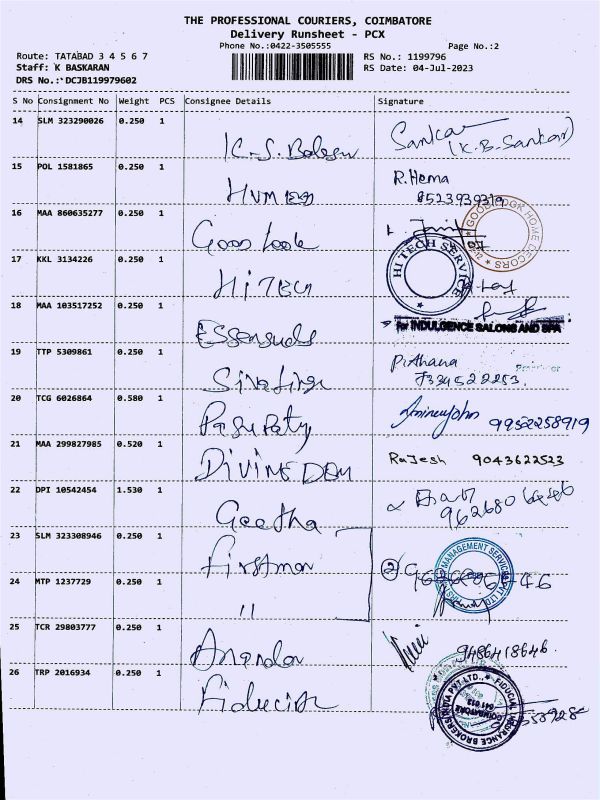 THE PROFESSIONAL COURIERS, COIMBATORE
Delivery Runsheet - PCX
Phone No.:0422-3505555 Page No.:2
Route: TATABAD 3 4 5 6 7 RS No.: 1199796
Staff: K BASKARAN RS Date: 04-Jul-2023
DRS No.: DCJB119979602
S No Consignment No Weight PCS Consignee Details Signature
14 SLM 323290026 0.250 1 Sankar
(K.B. Sankar)
15 POL 1581865 0.250 1 R.Hema
16 MAA 860635277 0.250 1 Good Look
GOOD LOOK HOME DECORS
17 KKL 3134226 0.250 1 HiTECH
HI TECH SERVICE
18 MAA 103517252 0.250 1 Essensuals
for INDULGENCE SALONS AND SPA
19 TTP 5309861 0.250 1
20 TCG 6026864 0.580 1 Pasupaty 9952258919
21 MAA 299827985 0.520 1 DIVINE Rajesh 9043622523
22 DPI 10542454 1.530 1 Geetha
23 SLM 323308946 0.250 1 Firstman
MANAGEMENT SERVICES PVT LTD
24 MTP 1237729 0.250 1 "
25 TCR 29803777 0.250 1 9486418646
26 TRP 2016934 0.250 1
COIMBATORE